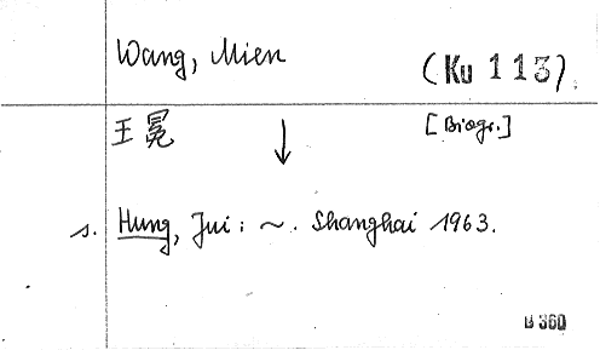 Wang, Mien
(Ku 113).
王冕 ↓
[Biogr.]
s. Hung, Jui: ~. Shanghai 1963.
B 360